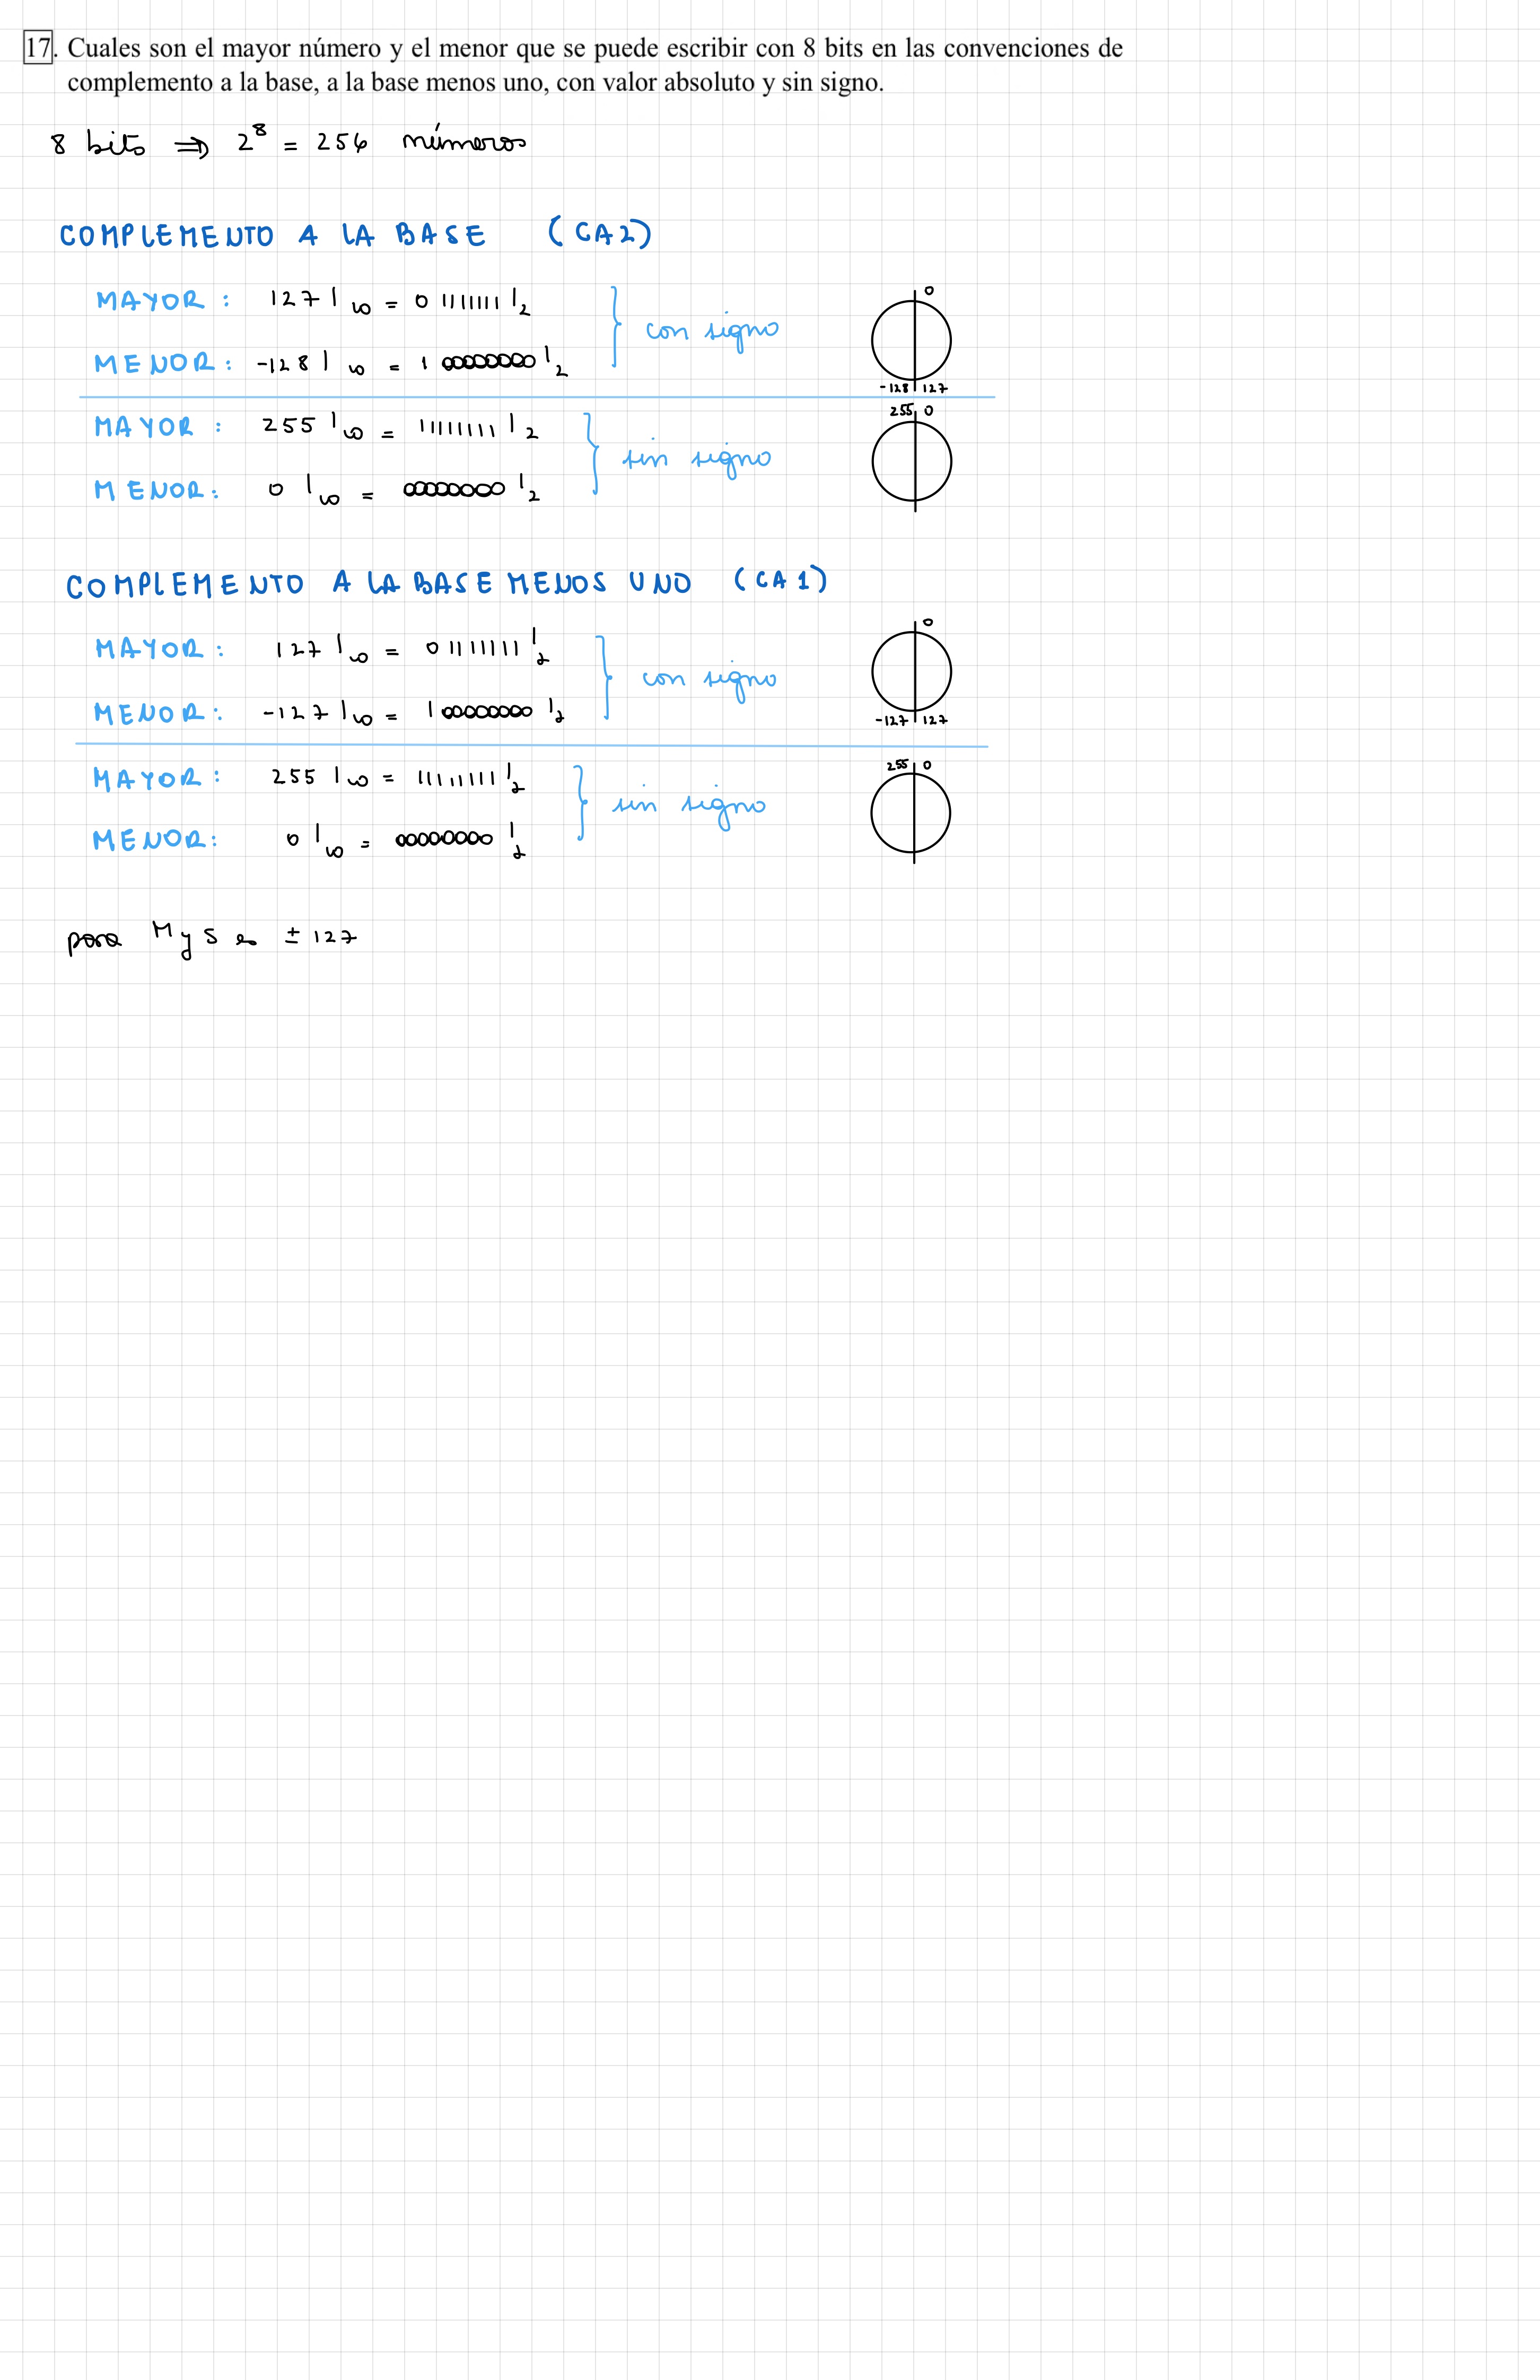 17. Cuales son el mayor número y el menor que se puede escribir con 8 bits en las convenciones de
complemento a la base, a la base menos uno, con valor absoluto y sin signo.
8 bits ⇒ 2⁸ = 256 números
COMPLEMENTO A LA BASE (CA2)
MAYOR: 127|₁₀ = 01111111|₂
MENOR: -128|₁₀ = 10000000|₂
con signo
0
-128 127
MAYOR: 255|₁₀ = 11111111|₂
MENOR: 0|₁₀ = 00000000|₂
sin signo
255 0
COMPLEMENTO A LA BASE MENOS UNO (CA1)
MAYOR: 127|₁₀ = 01111111|₂
MENOR: -127|₁₀ = 10000000|₂
con signo
0
-127 127
MAYOR: 255|₁₀ = 11111111|₂
MENOR: 0|₁₀ = 00000000|₂
sin signo
255 0
para M y S es ± 127